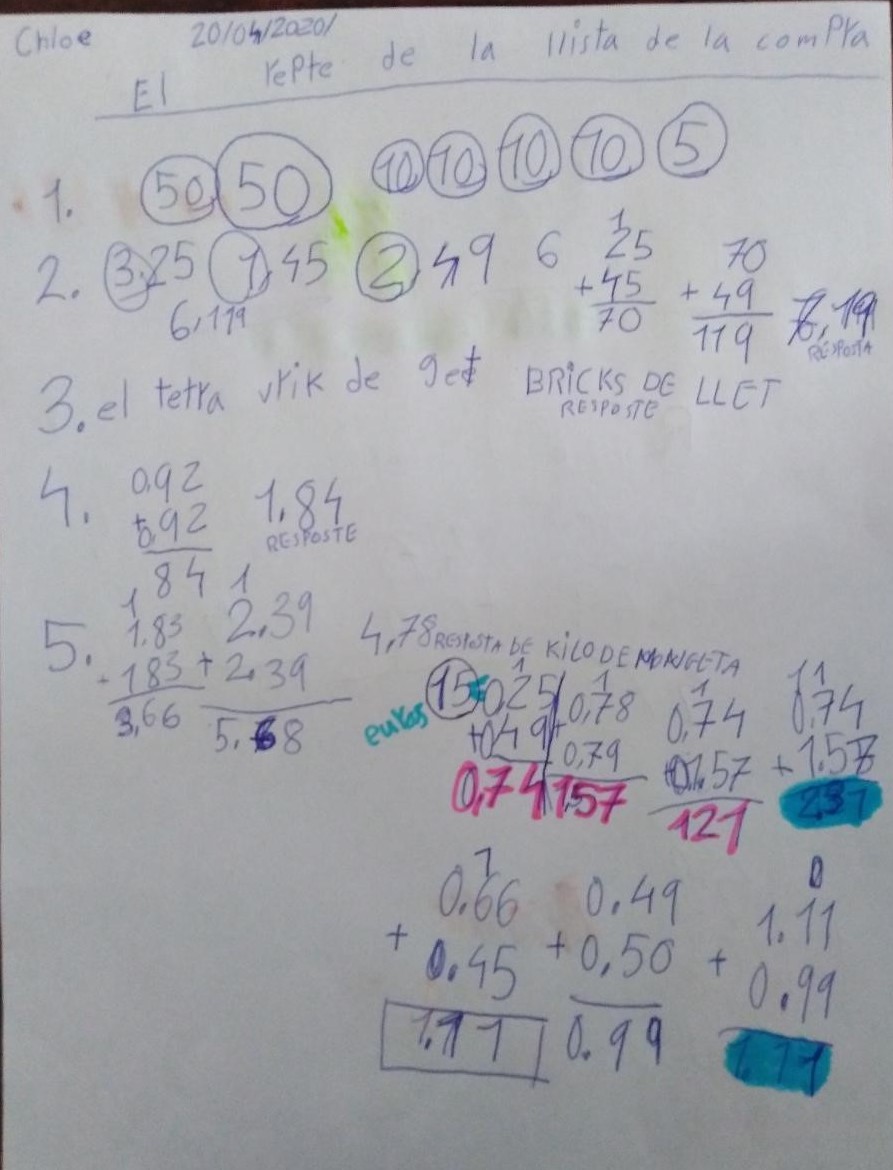 Chloe 20/04/2020/
El repte de la llista de la comPra
1. 50 50 10 10 10 10 5
2. 3.25 1,45 2,49 6
1
25
+45
70
70
+ 49
119
7,19
RESPOSTA
6,119
3. el tetra vrik de get BRICKS DE LLET
RESPOSTE
4. 0.92
+0.92
84
1.84
RESPOSTE
5.
1
1.83
+183
3,66
1
2.39
+2.39
5.68
4,78 RESPOSTA DE KILO DE MONGETA
euros 15
1
025
+049
0,74
1
0,78
+0,79
1.57
1
0,74
+0,57
121
11
0,74
+1.57
231
1
0.66
+0.45
1.11
0.49
+0,50
0.99
0
1.11
+0.99
1.11